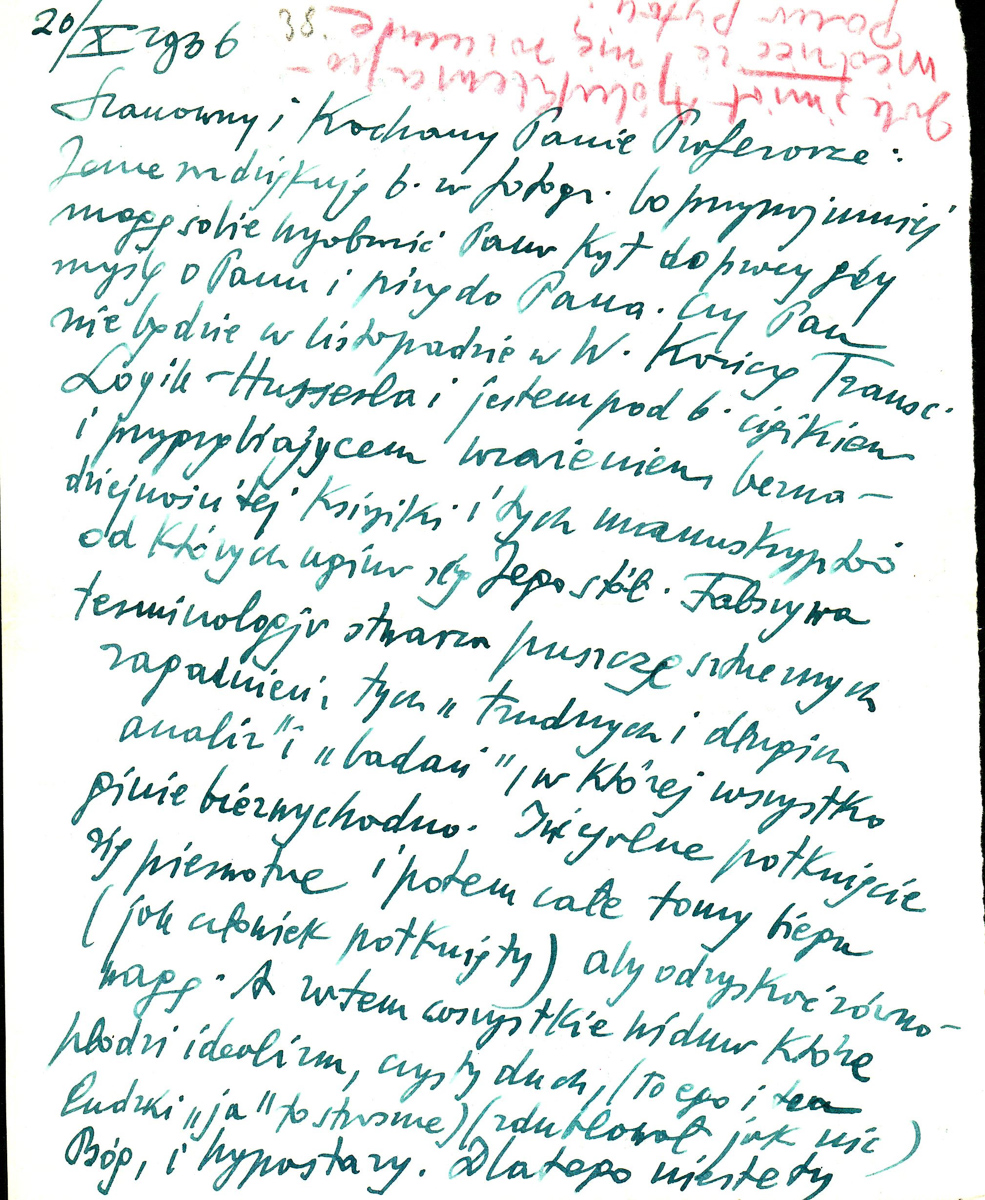 20/X 1936
38.
Jeśli miał
wiedzieć że się rozumie
Pana pyta
Szanowny i Kochany Panie Profesorze:
dziękuję b. w fotogr. bo przynajmniej
mogę sobie wyobrazić Pana kąt do pracy gdy
myślę o Panu i piszę do Pana. Czy Pan
nie będzie w listopadzie w W. Kończę Transc.
Logik - Husserla i jestem pod b. ciężkiem
i przygnębiającem wrażeniem bezna-
dziejności tej książki i tych manuskryptów
od których ugina się Jego stół. Fałszywa
terminologja stwarza puszczę sztucznych
zagadnień, tych „trudnych i długich
analiz" i „badań", w której wszystko
ginie bezwychodno. Inicjalne potknięcie
się pierwotne i potem całe tomy biegu
(jak człowiek potknięty) aby odzyskać równo-
wagę. A zatem wszystkie widma które
płodzi idealizm, czysty duch, (to ego i ten
ludzki „ja" to straszne) (zdublował jak nic)
Bóg, i hypostazy. Dlatego niestety